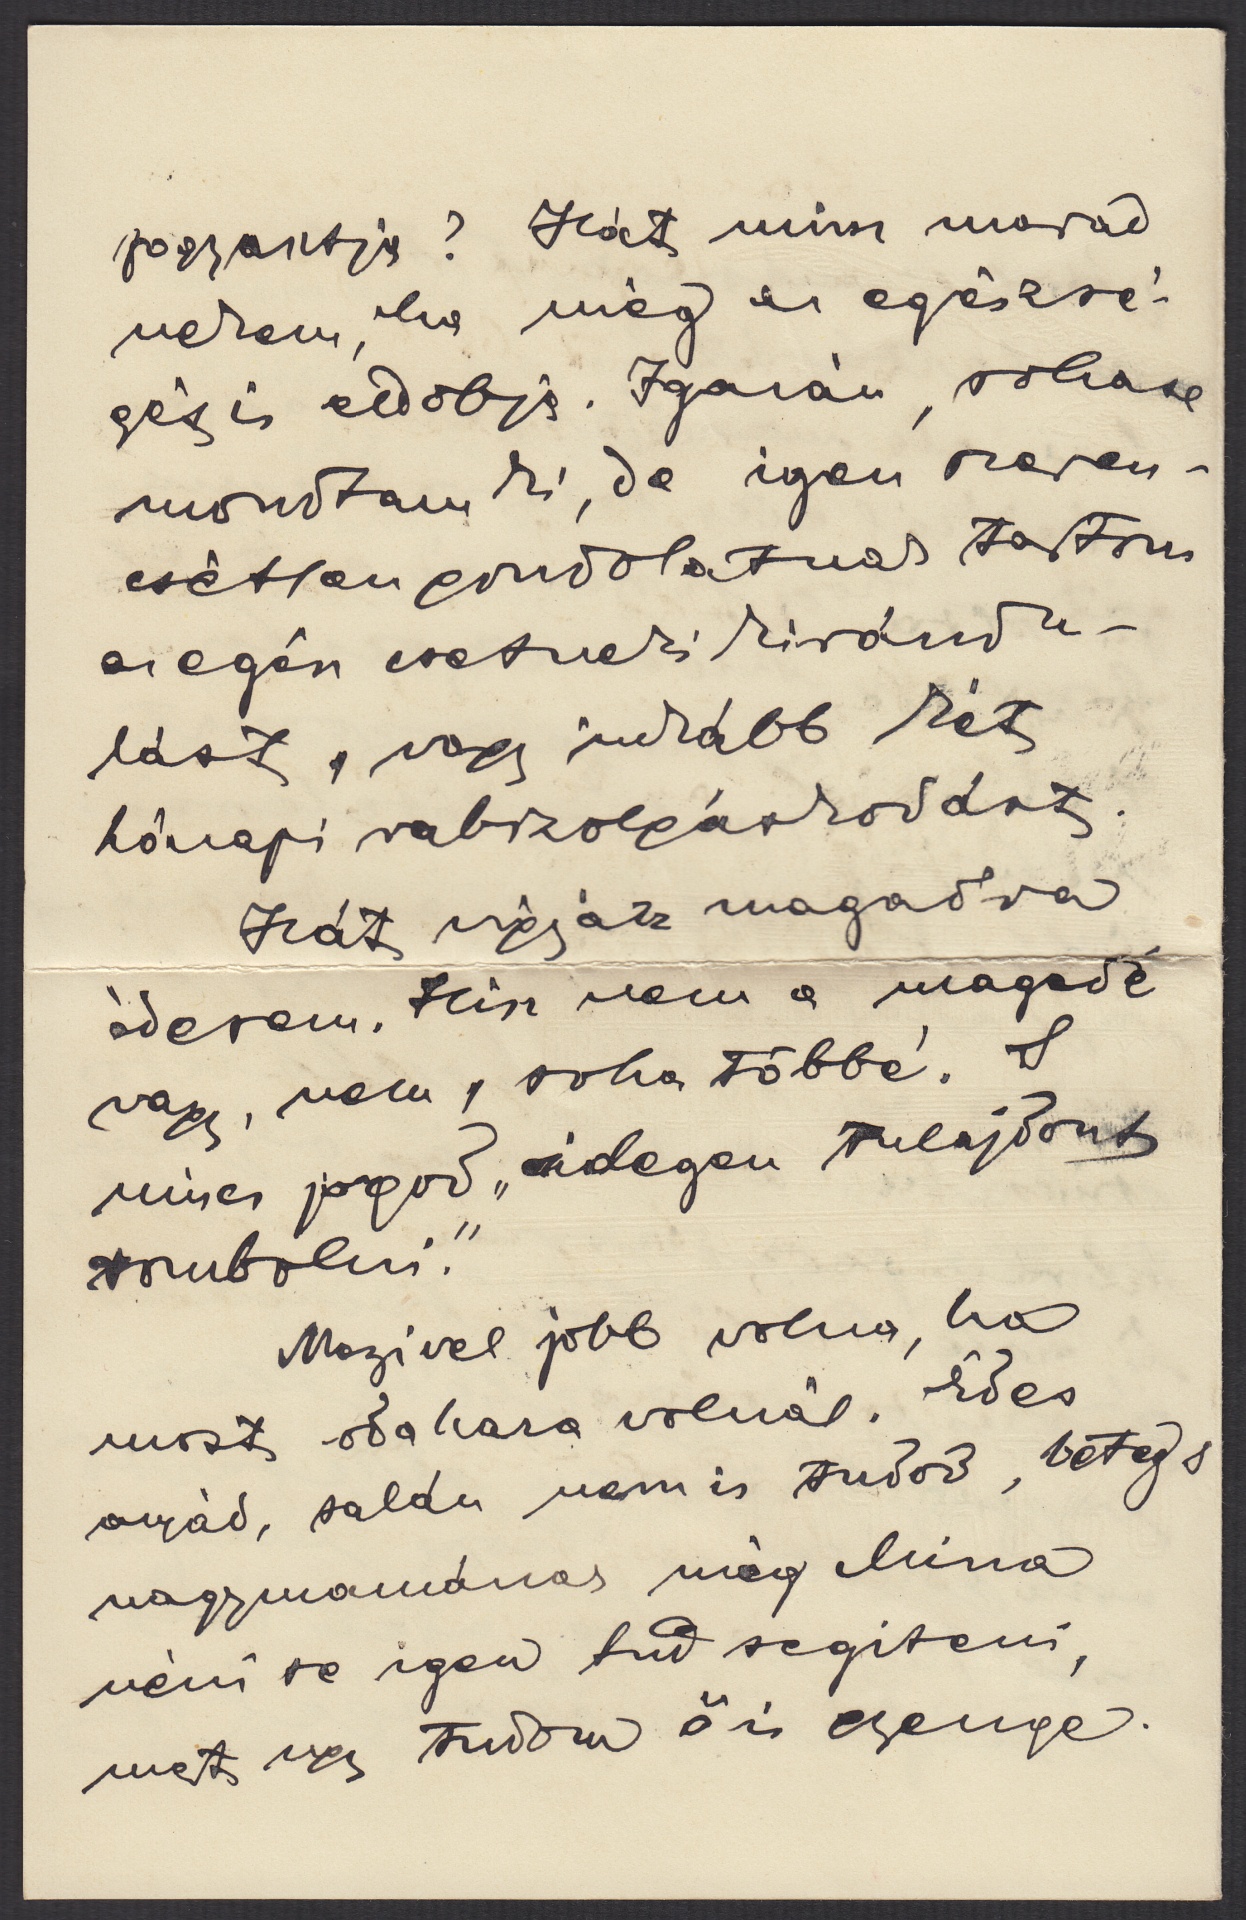 fogyasztja? Hát mim marad
nekem, ha még az egészsé-
gét is eldobja. Igazán, sohase
mondtam ki, de igen szeren-
csétlen gondolatnak tartom
az egész csetneki kirándu-
lást, vagy inkább két
hónapi rabszolgáskodást.
Hát vigyázz magadra
édesem. Hisz nem a magadé
vagy, nem, soha többé. S
nincs jogod „idegen tulajdont
rombolni."
Mégivel jobb volna, ha
most odahaza volnál. Édes
anyád, talán nem is tudod, beteg s
nagymamának még Mina
néni se igen tud segíteni,
mert ugy tudom ő is gyenge.